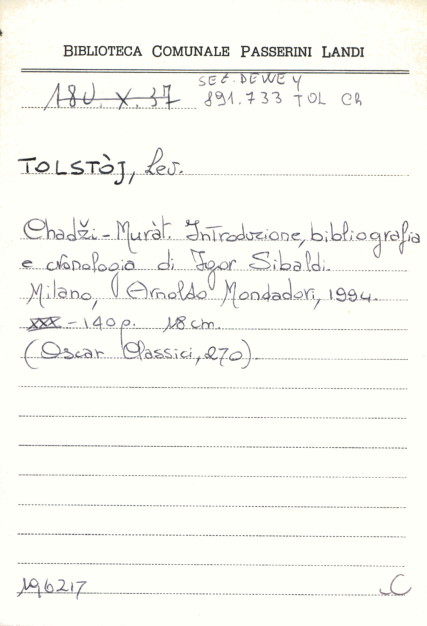 BIBLIOTECA COMUNALE PASSERINI LANDI
SEZ. DEWEY
180. X. 37 891.733 TOL Ch
TOLSTÒJ, Lev.
Chadži-Muràt. Introduzione, bibliografia
e cronologia di Igor Sibaldi.
Milano, Arnoldo Mondadori, 1994.
XXX-140 p. 18 cm.
(Oscar Classici, 270).
196217 C